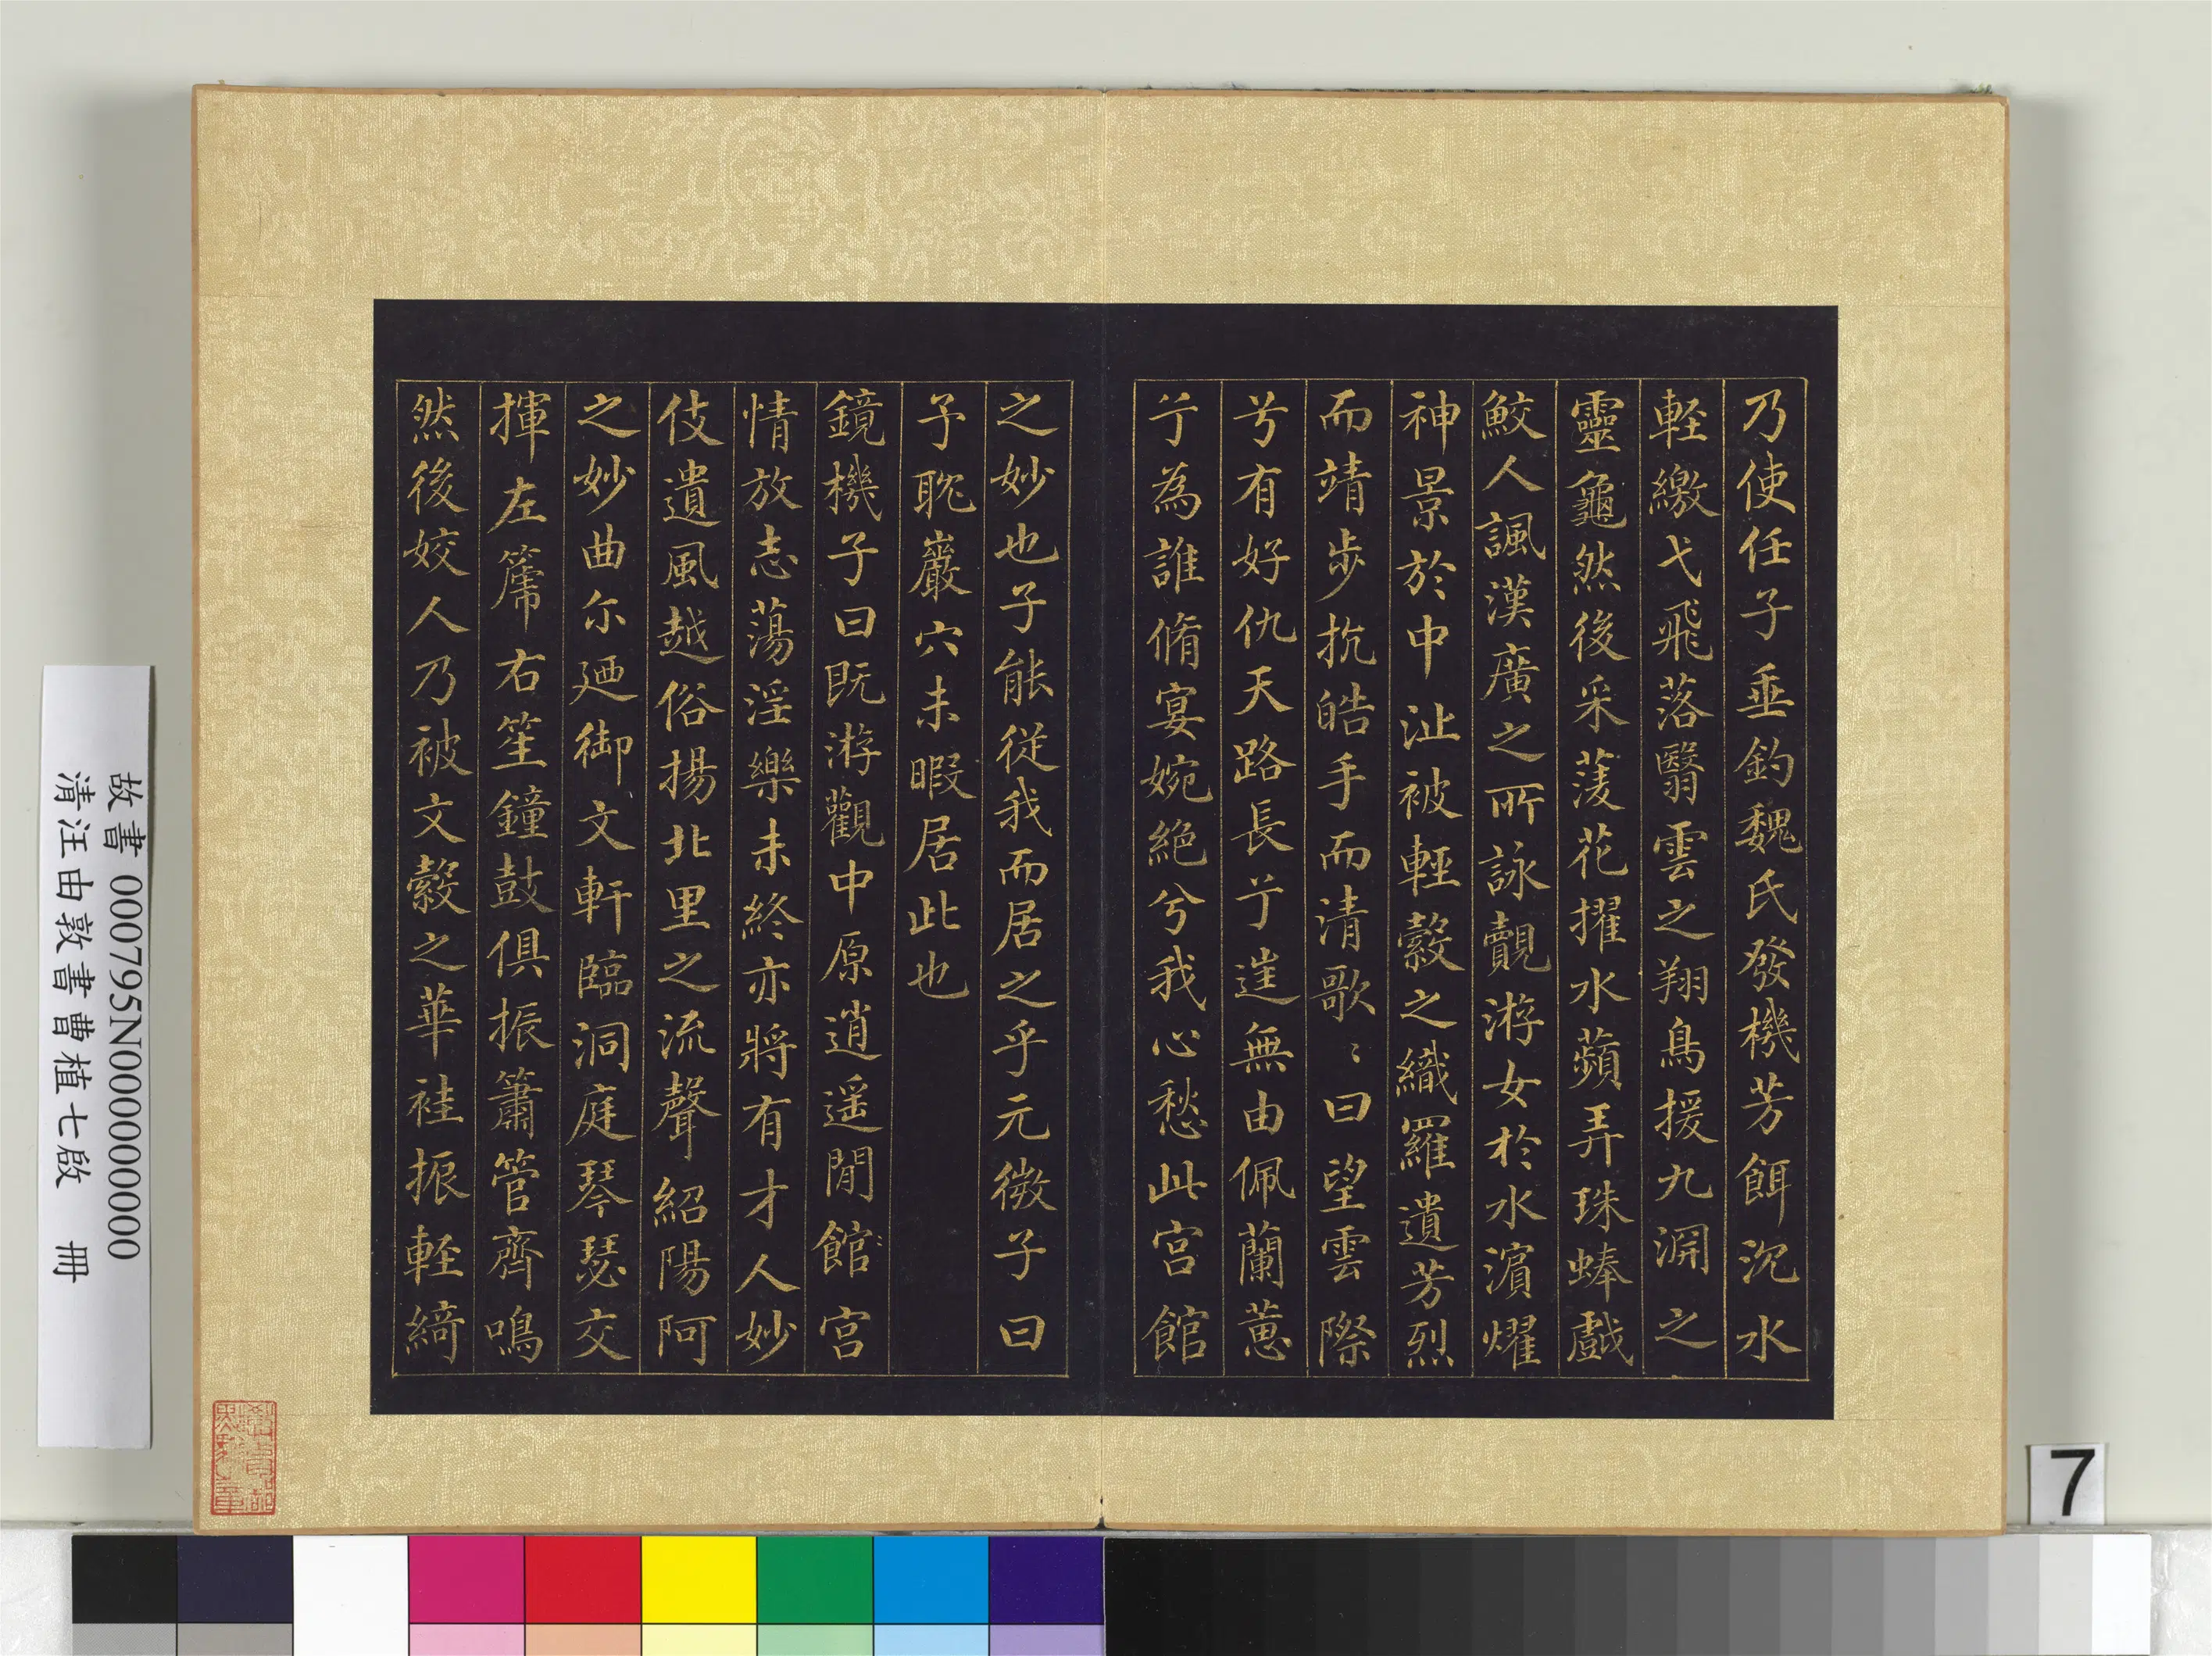 乃使任子垂釣魏氏發機芳餌沉水
軽繳弋飛落翳雲之翔鳥援九淵之
靈龜然後采菱花擢水蘋弄珠蜯戲
鮫人諷漢廣之所詠覿游女於水濵燿
神景於中沚被輕縠之纖羅遺芳烈
而靖步抗皓手而清歌〻曰望雲際
兮有好仇天路長兮徃無由佩蘭蕙
兮為誰脩宴婉絕兮我心愁此宫館
之妙也子能從我而居之乎元微子曰
予耽巖穴未暇居此也
鏡機子曰既游觀中原逍遥閒館宫
情放志蕩淫樂未終亦將有才人妙
伎遺風越俗揚北里之流聲紹陽阿
之妙曲尓廼御文軒臨洞庭琴瑟交
揮左篪右笙鐘鼓俱振簫管齊鳴
然後姣人乃被文縠之華袿振軽綺
故書 000795N000000000
清汪由敦書曹植七啟 冊
7